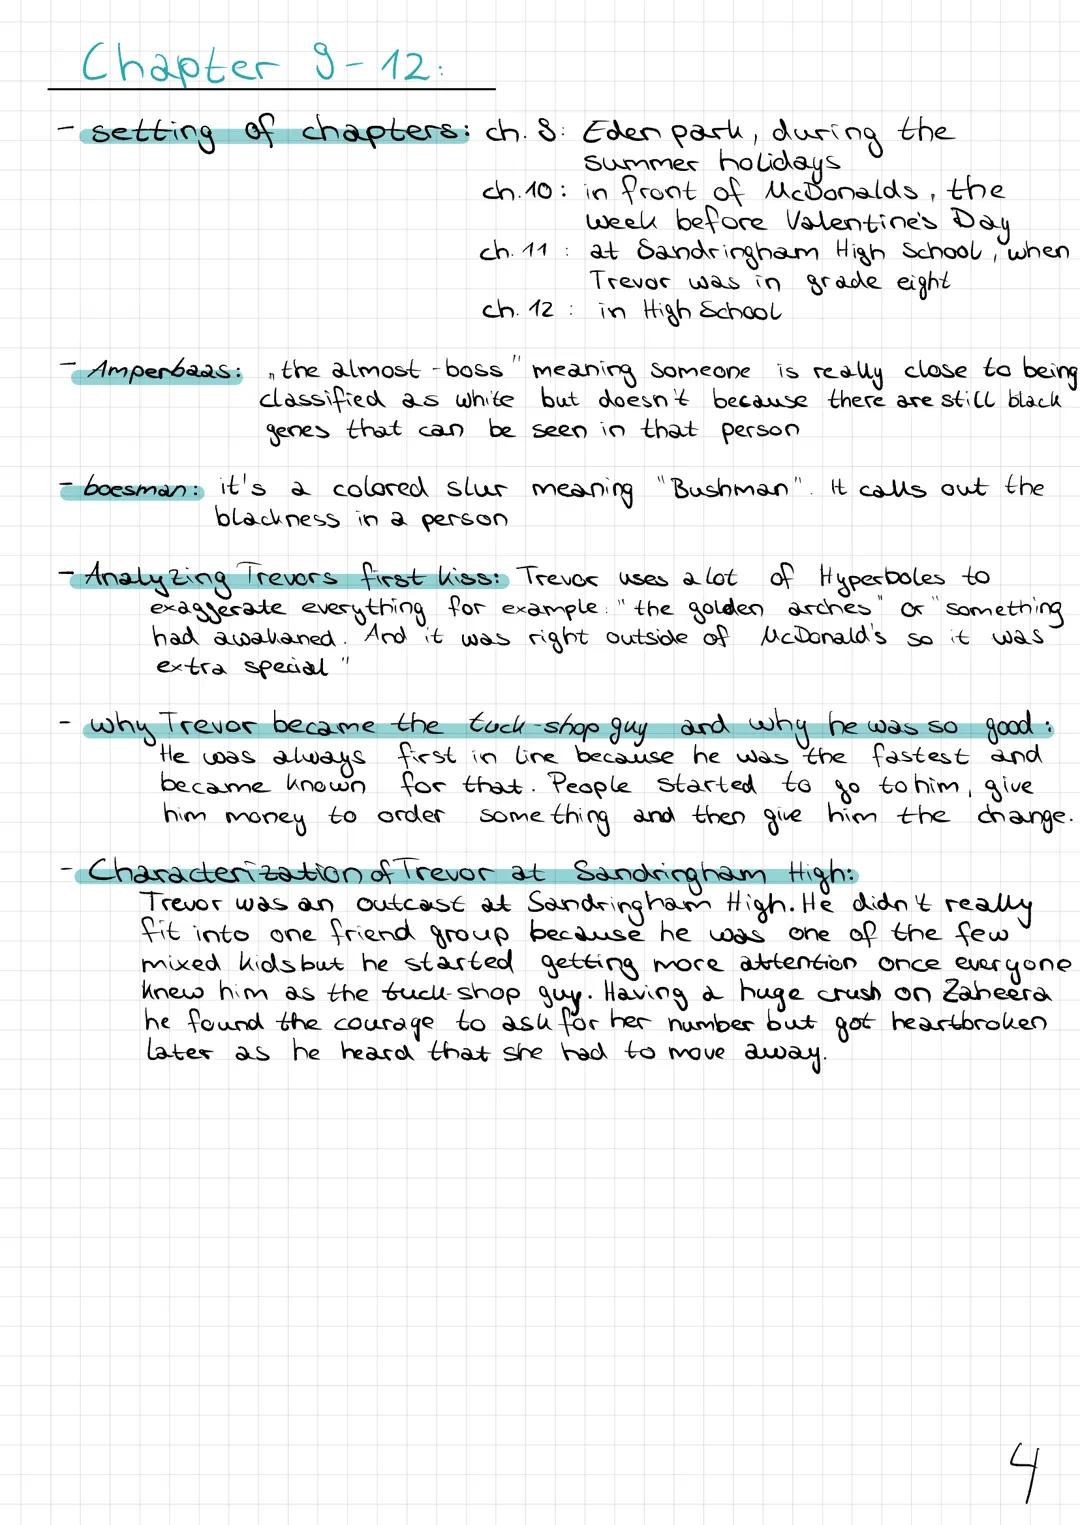 Chapter 9-12:
- setting of chapters: ch. 9: Eden park, during the
summer holidays
ch.10: in front of McDonalds, the
week before Valentine's Day
ch. 11: at Sandringham High School, when
Trevor was in grade eight
ch. 12: in High School
- Amperbaas: „the almost-boss" meaning someone is really close to being
classified as white but doesn't because there are still black
genes that can be seen in that person
- boesman: it's a colored slur meaning "Bushman". It calls out the
blackness in a person
- Analyzing Trevors first kiss: Trevor uses a lot of Hyperboles to
exaggerate everything for example: "the golden arches" or "something
had awakaned. And it was right outside of McDonald's so it was
extra special"
- why Trevor became the tuck-shop guy and why he was so good:
He was always first in line because he was the fastest and
became known for that. People started to go to him, give
him money to order something and then give him the change.
- Characterization of Trevor at Sandringham High:
Trevor was an outcast at Sandringham High. He didn't really
fit into one friend group because he was one of the few
mixed kids but he started getting more attention once everyone
knew him as the tuck-shop guy. Having a huge crush on Zaheera
he found the courage to ask for her number but got heartbroken
later as he heard that she had to move away.
4